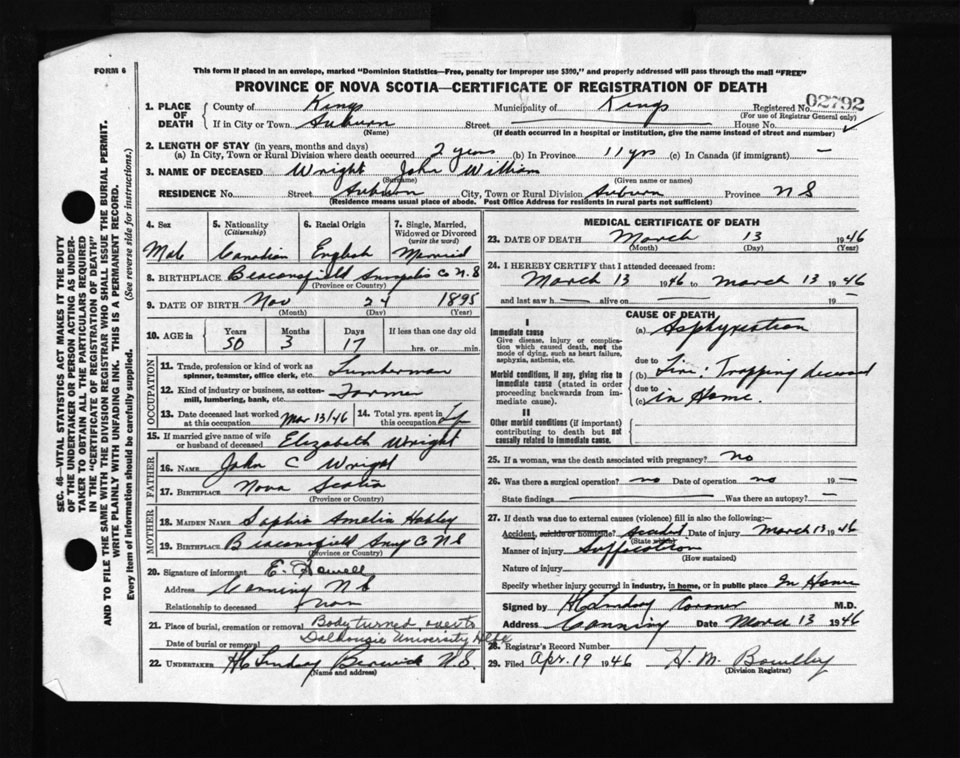 FORM 6
This form if placed in an envelope, marked "Dominion Statistics—Free, penalty for improper use $300," and properly addressed will pass through the mail "FREE"
PROVINCE OF NOVA SCOTIA—CERTIFICATE OF REGISTRATION OF DEATH
1. PLACE OF DEATH County of Kings Municipality of Kings Registered No. 02792
(For use of Registrar General only)
If in City or Town Auburn Street House No.
(Name) (If death occurred in a hospital or institution, give the name instead of street and number)
2. LENGTH OF STAY (in years, months and days)
(a) In City, Town or Rural Division where death occurred 2 years (b) In Province 11 yrs (c) In Canada (if immigrant) —
3. NAME OF DECEASED Wright John William
(Surname) (Given name or names)
RESIDENCE No. Street Auburn City, Town or Rural Division Auburn Province N S
(Residence means usual place of abode. Post Office Address for residents in rural parts not sufficient)
4. Sex 5. Nationality (Citizenship) 6. Racial Origin 7. Single, Married, Widowed or Divorced (write the word)
Male Canadian English Married
8. BIRTHPLACE Beaconsfield Annapolis C N.S
(Province or Country)
9. DATE OF BIRTH Nov 24 1895
(Month) (Day) (Year)
10. AGE in Years Months Days If less than one day old
50 3 17 hrs. or min.
OCCUPATION
11. Trade, profession or kind of work as spinner, teamster, office clerk, etc. Lumberman
12. Kind of industry or business, as cotton-mill, lumbering, bank, etc. Farmer
13. Date deceased last worked at this occupation Mar 13/46 14. Total yrs. spent in this occupation
15. If married give name of wife or husband of deceased Elizabeth Wright
FATHER
16. NAME John C Wright
17. BIRTHPLACE Nova Scotia
(Province or Country)
MOTHER
18. MAIDEN NAME Sophia Amelia
19. BIRTHPLACE Beaconsfield Anny C N S
(Province or Country)
20. Signature of informant E.
Address Canning N S
Relationship to deceased
21. Place of burial, cremation or removal Body turned over to
Dalhousie University Hlfx
Date of burial or removal
22. UNDERTAKER H C Lindsay Berwick N.S.
(Name and address)
MEDICAL CERTIFICATE OF DEATH
23. DATE OF DEATH March 13 1946
(Month) (Day) (Year)
24. I HEREBY CERTIFY that I attended deceased from:
March 13 1946 to March 13 1946
and last saw h alive on — 19 —
CAUSE OF DEATH
I
Immediate cause
Give disease, injury or complication which caused death, not the mode of dying, such as heart failure, asphyxia, asthenia, etc.
(a) Asphyxiation
due to
Morbid conditions, if any, giving rise to immediate cause (stated in order proceeding backwards from immediate cause).
(b) Fire: Trapping deceased
due to
(c) in Home.
II
Other morbid conditions (if important) contributing to death but not causally related to immediate cause.
25. If a woman, was the death associated with pregnancy? No
26. Was there a surgical operation? no Date of operation no 19 —
State findings Was there an autopsy? —
27. If death was due to external causes (violence) fill in also the following:—
Accident, suicide or homicide? Date of injury March 13 1946
(State which)
Manner of injury Suffocation
(How sustained)
Nature of injury
Specify whether injury occurred in industry, in home, or in public place In Home
Signed by H C Lindsay Coroner M.D.
Address Canning Date March 13 1946
28. Registrar's Record Number
29. Filed Apr. 19 1946 H. M.
(Division Registrar)
SEC. 46—VITAL STATISTICS ACT MAKES IT THE DUTY
OF THE UNDERTAKER OR PERSON ACTING AS UNDER-
TAKER TO OBTAIN ALL THE PARTICULARS REQUIRED
IN THE "CERTIFICATE OF REGISTRATION OF DEATH"
AND TO FILE THE SAME WITH THE DIVISION REGISTRAR WHO SHALL ISSUE THE BURIAL PERMIT.
WRITE PLAINLY WITH UNFADING INK. THIS IS A PERMANENT RECORD.
Every item of information should be carefully supplied. (See reverse side for instructions.)